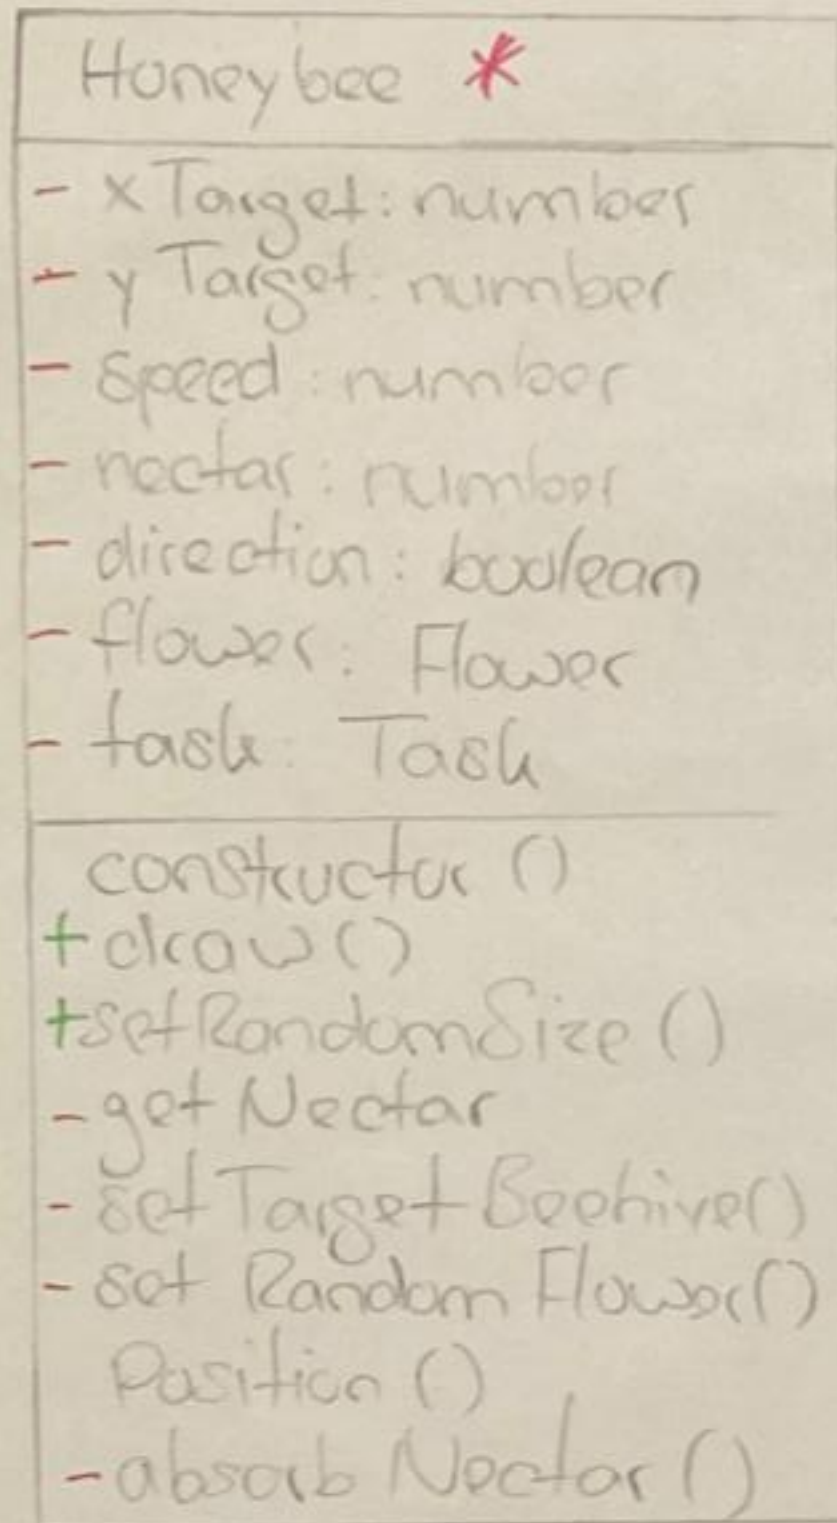 Honeybee *
- xTarget: number
- yTarget: number
- speed: number
- nectar: number
- direction: boolean
- flower: Flower
- task: Task
constructor ()
+ draw ()
+ setRandomSize ()
- get Nectar
- setTargetBeehive()
- set Random Flower()
Position ()
- absorb Nectar ()